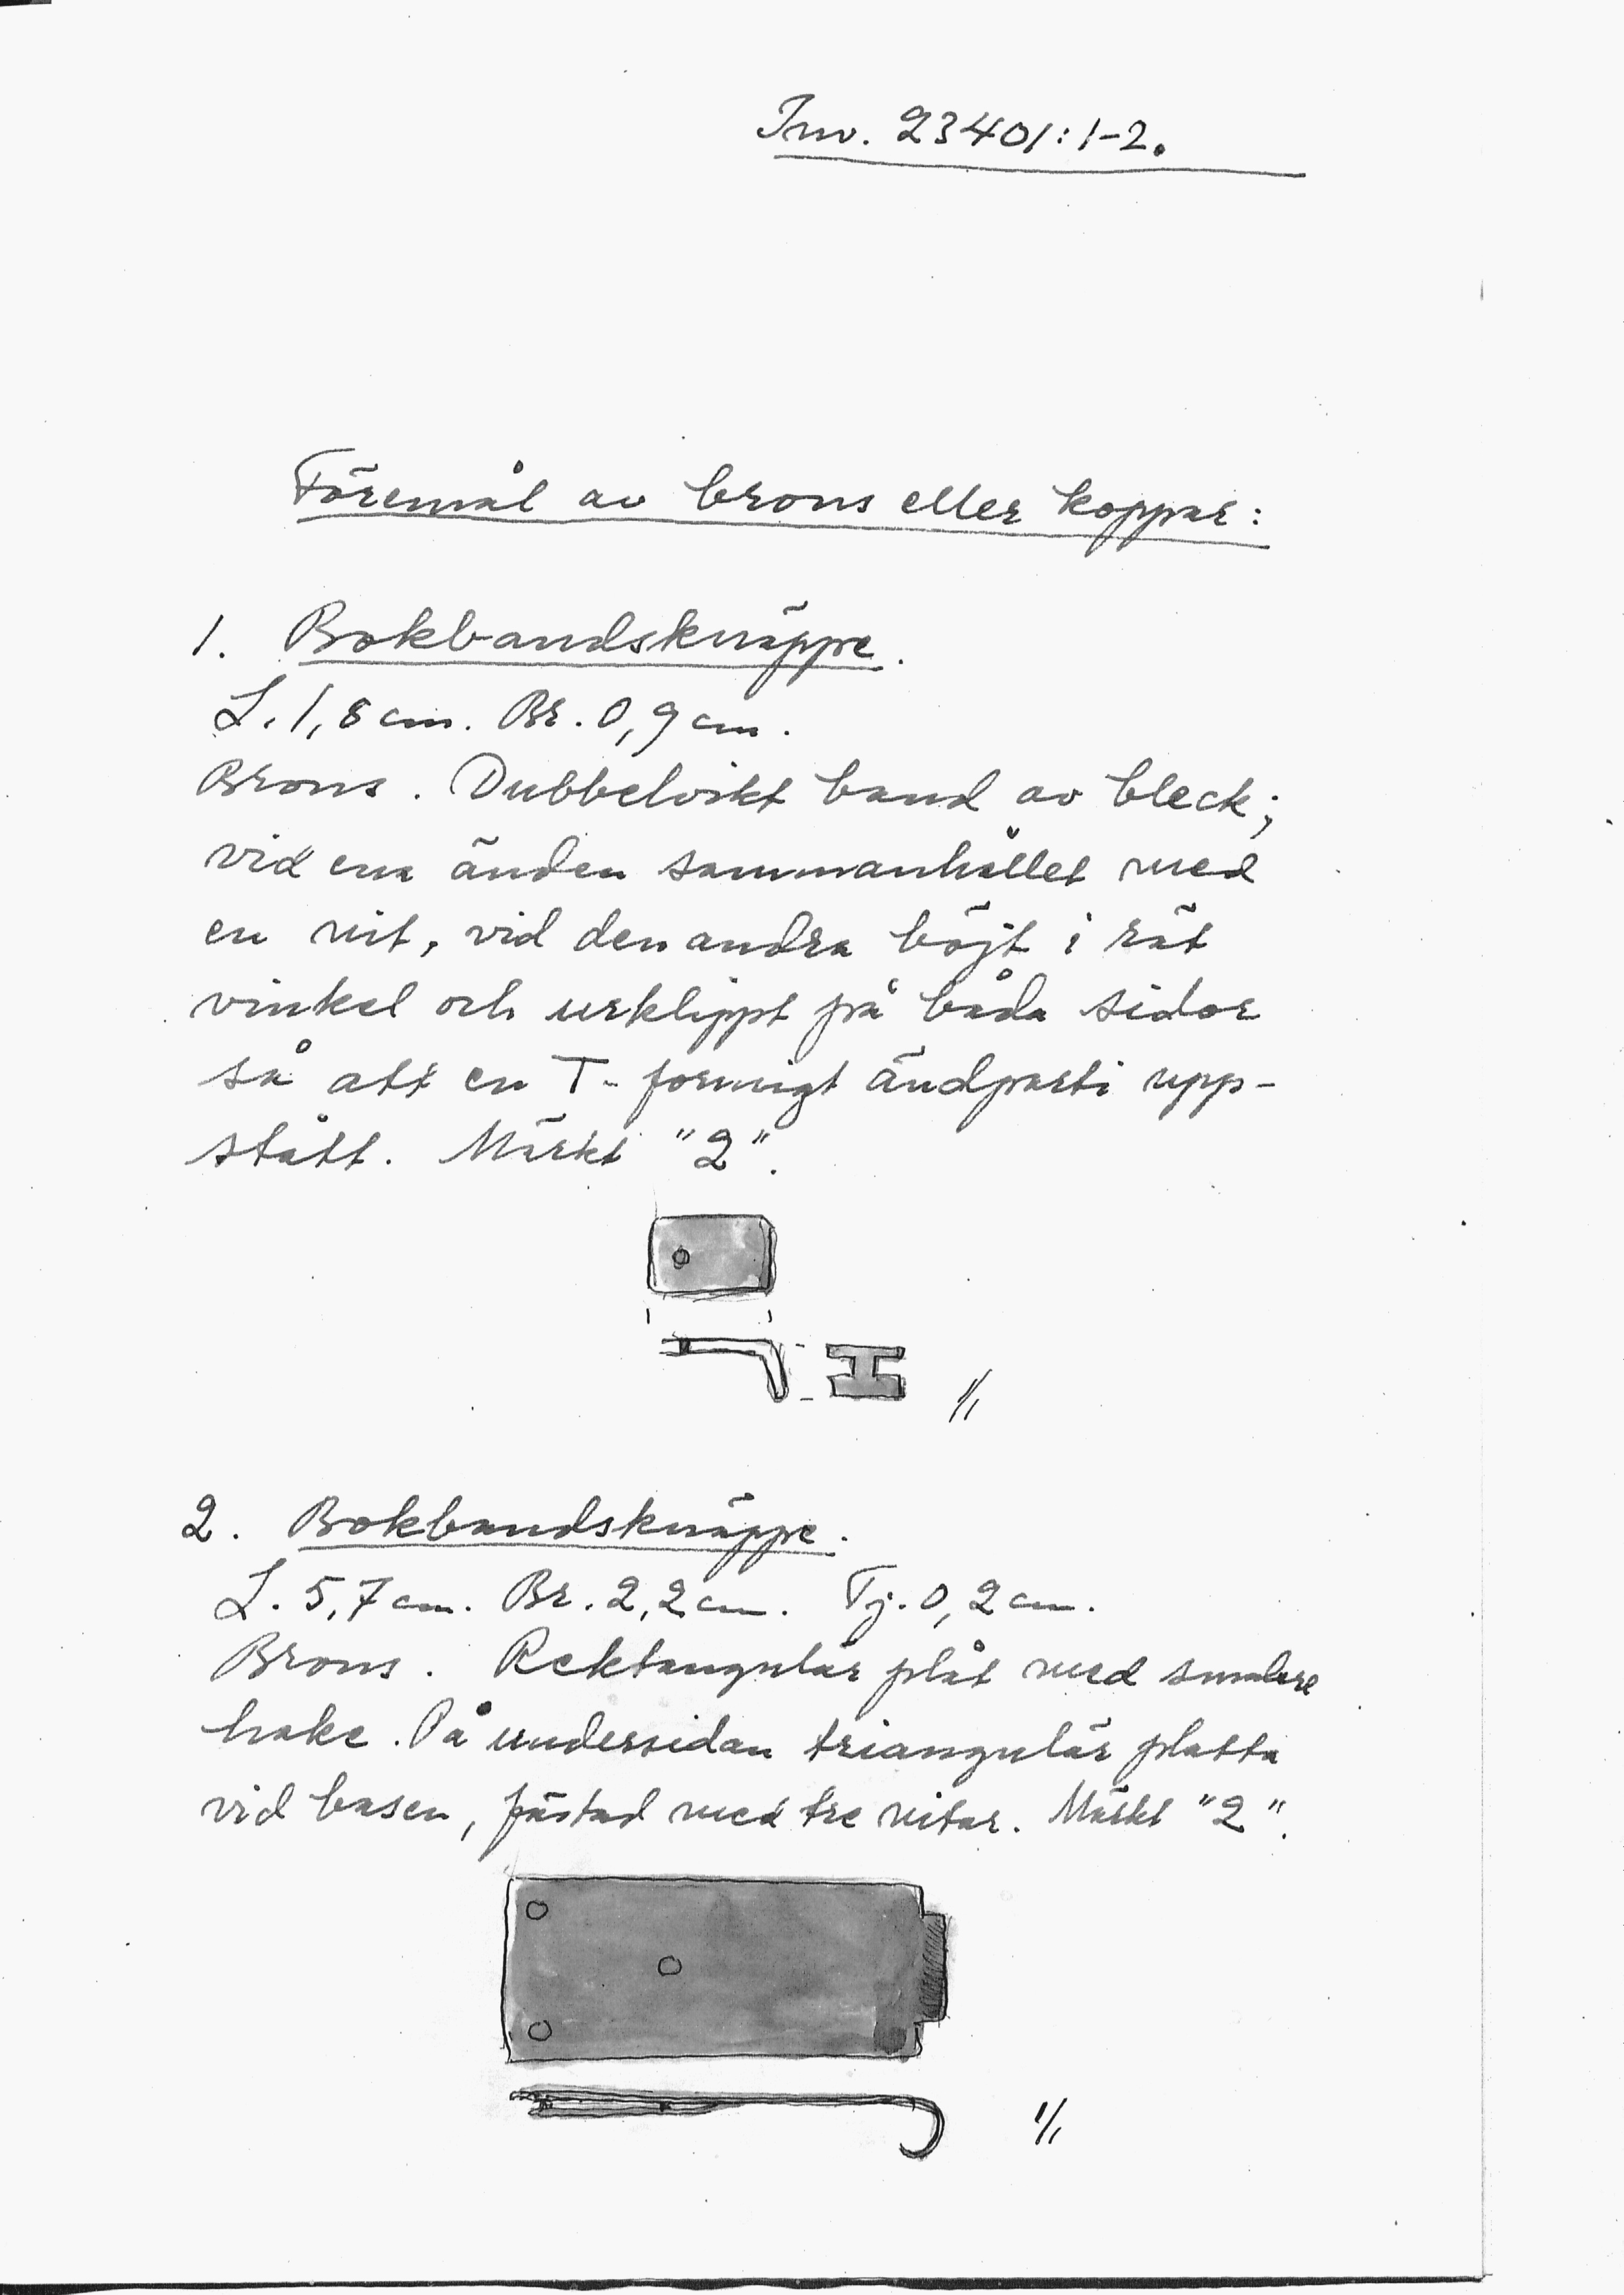 Inv. 23401:1-2.
Föremål av brons eller koppar:
1. Bokbandsknäppe.
L. 1,8 cm. Br. 0,9 cm.
Brons. Dubbelvikt band av bleck;
vid ena änden sammanhållet med
en nit, vid den andra böjt i rät
vinkel och urklippt på båda sidor
så att en T-formigt ändparti upp-
stått. Märkt "2".
1/1
2. Bokbandsknäppe.
L. 5,7 cm. Br. 2,2 cm. Tj. 0,2 cm.
Brons. Rektangulär plåt med smalare
hake. På undersidan triangulär platta
vid basen, fästad med tre nitar. Märkt "2".
1/1